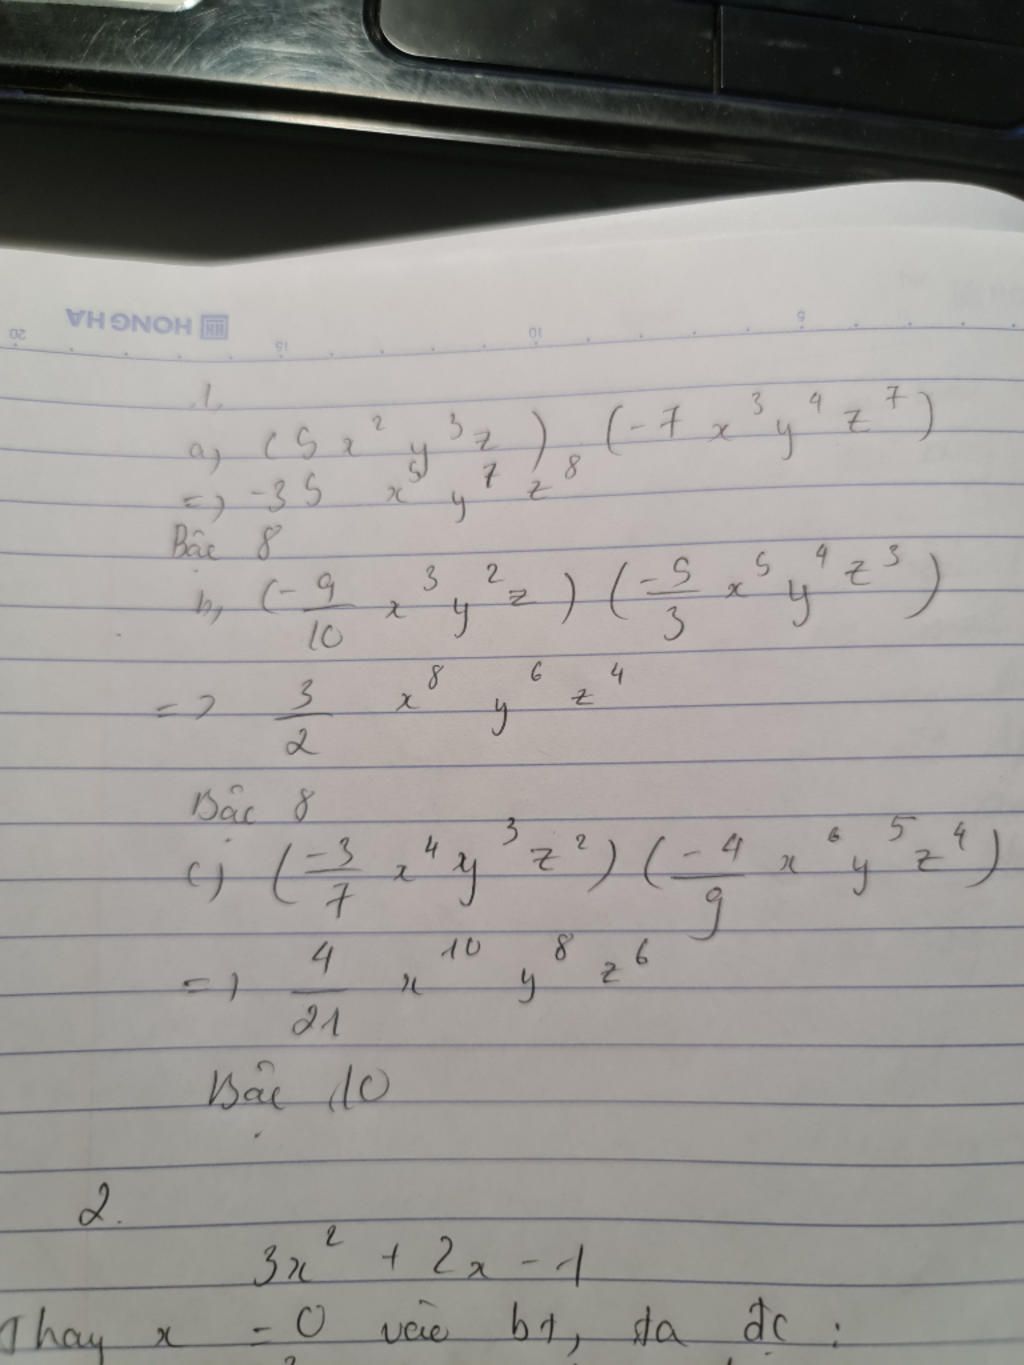 HONG HA
20 15 10 5
1.
a, (5x²y³z) (-7x³y⁴z⁷)
=> -35 x⁵ y⁷ z⁸
Bậc 8
b, (-9/10 x³y²z) (-5/3 x⁵y⁴z³)
=> 3/2 x⁸ y⁶ z⁴
Bậc 8
c) (-3/7 x⁴y³z²) (-4/9 x⁶y⁵z⁴)
=> 4/21 x¹⁰ y⁸ z⁶
Bậc 10
2.
3x² + 2x - 1
Thay x = 0 vào bt, ta đc :